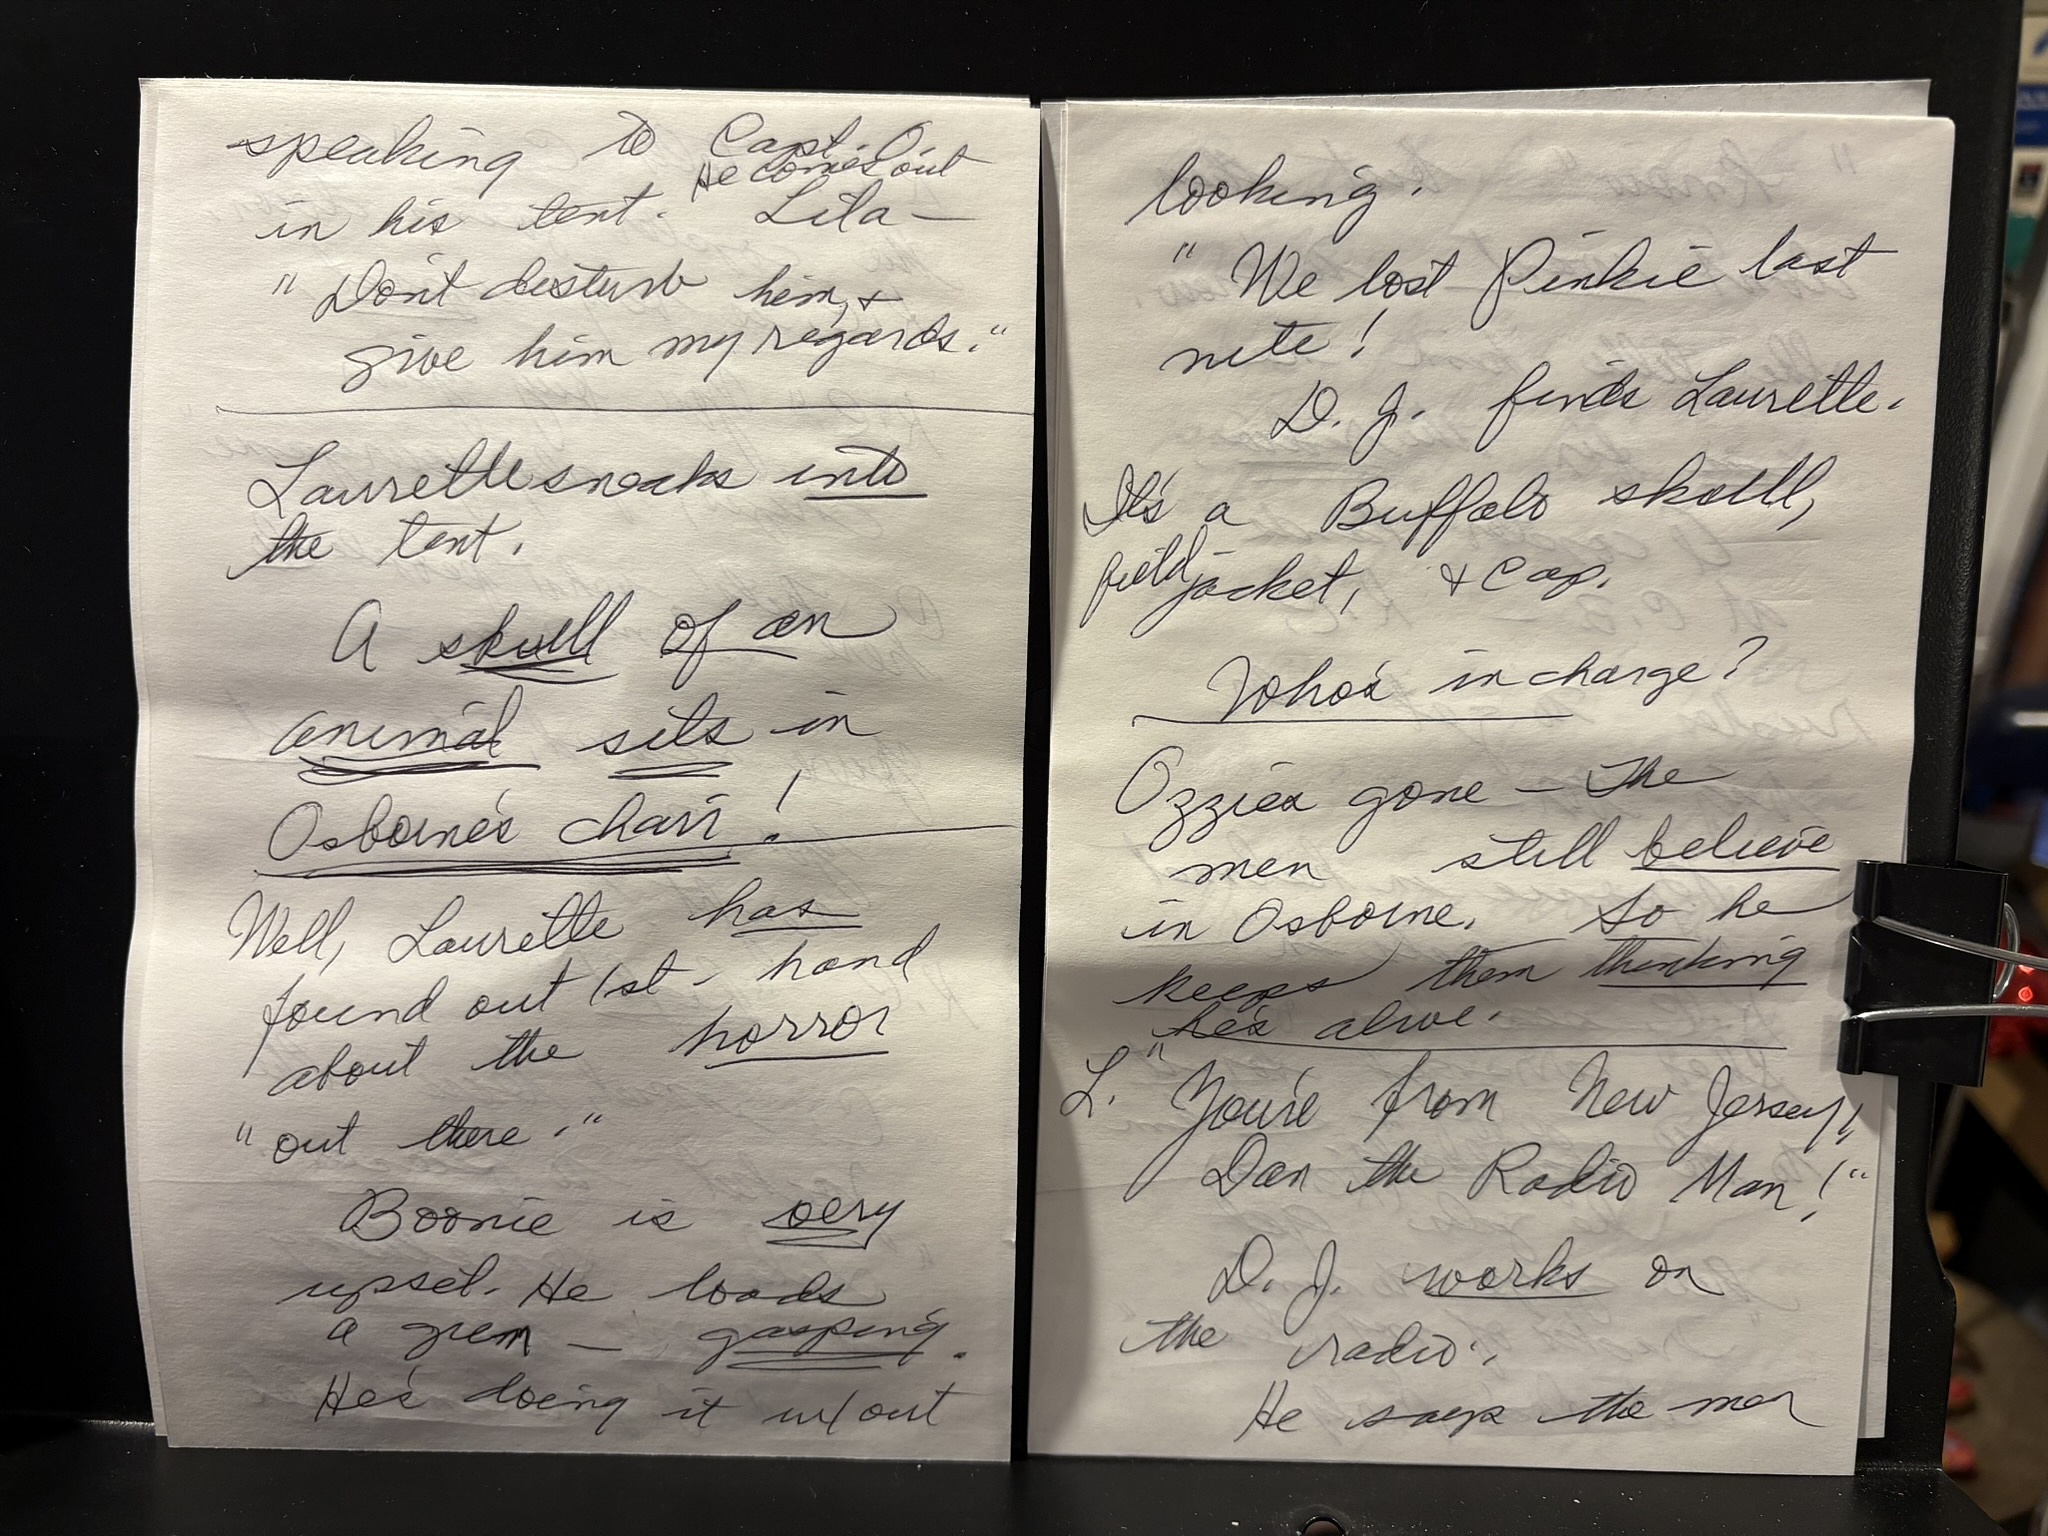 speaking to Capt. O.
He comes out
in his tent. Lila —
"Don't disturb him, +
give him my regards."
Laurette sneaks into
the tent.
A skull of an
animal sits in
Osborne's chair!
Well, Laurette has
found out 1st-hand
about the horror
"out there."
Boonie is very
upset. He loads
a gun — gasping.
He's doing it w/out
looking.
"We lost Pinkie last
nite!
D.J. finds Laurette.
It's a Buffalo skull,
field jacket, + cap.
Who's in charge?
Ozzie's gone — The
men still believe
in Osborne. So he
keeps them thinking
he's alive.
L. "You're from New Jersey!
Dan the Radio Man!"
D.J. works on
the radio.
He says the men